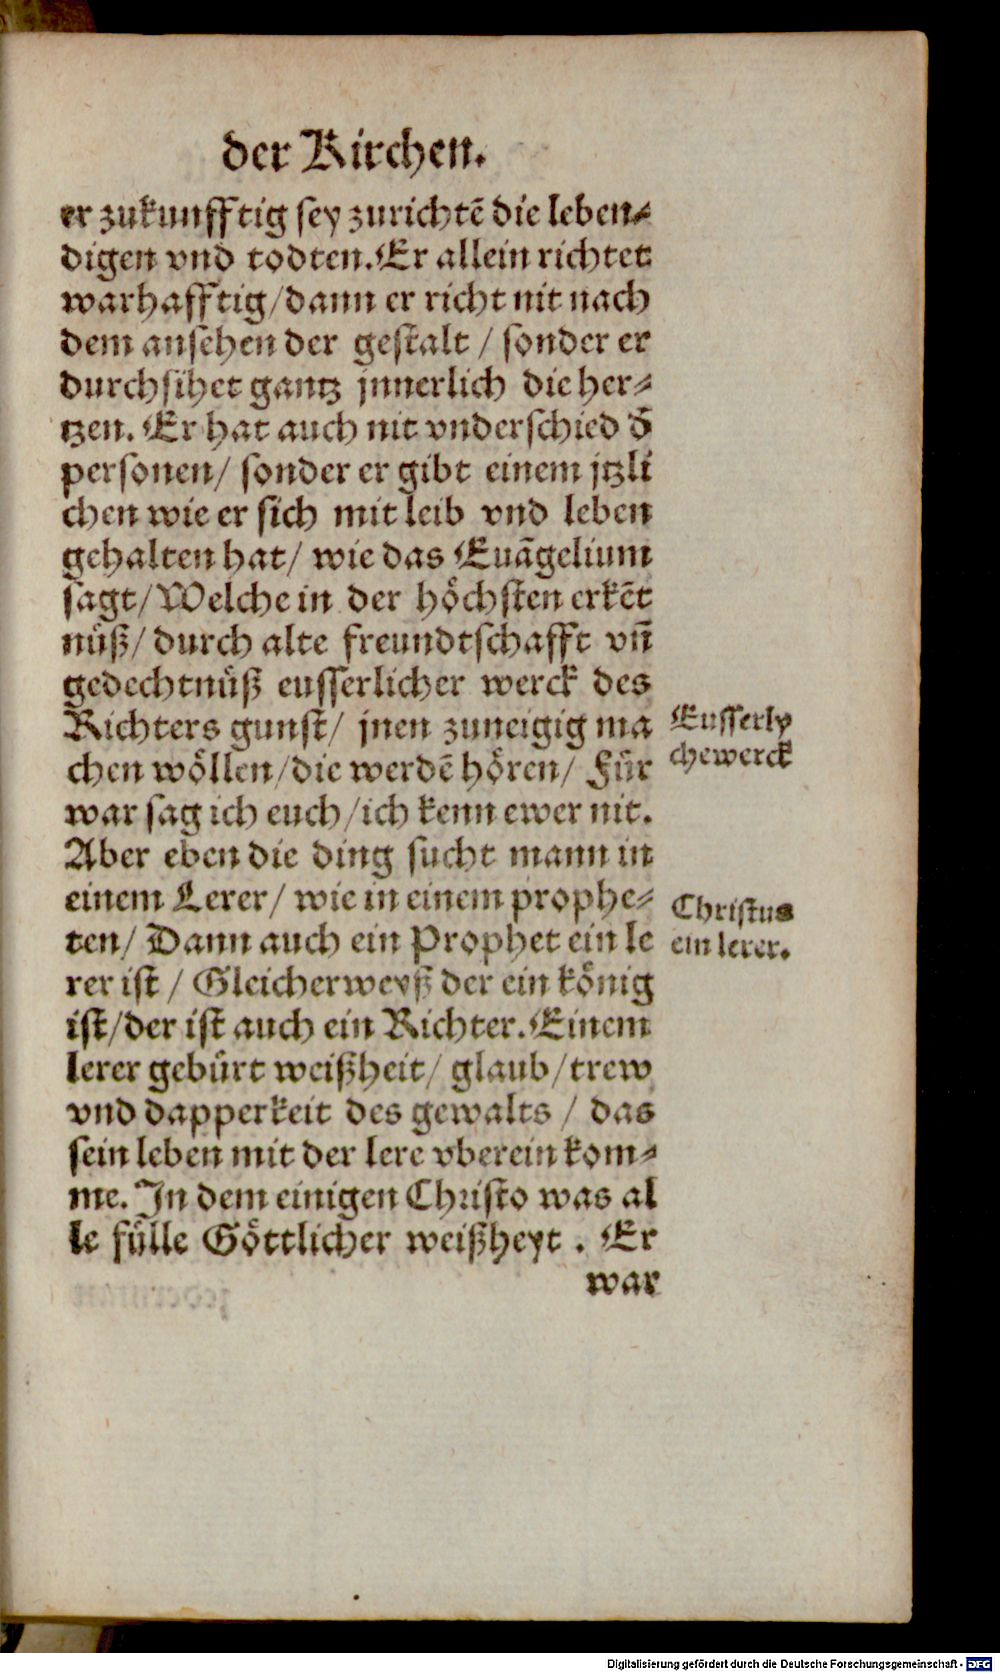 der Kirchen.
er zukunfftig sey zurichtē die leben⸗
digen vnd todten. Er allein richtet
warhafftig/dann er richt nit nach
dem ansehen der gestalt / sonder er
durchsihet gantz jnnerlich die her⸗
tzen. Er hat auch nit vnderschied d̄
personen/ sonder er gibt einem jtzli
chen wie er sich mit leib vnd leben
gehalten hat/ wie das Euāgelium
sagt/Welche in der hoͤchsten erkēt
nuͤß/durch alte freundtschafft vn̄
gedechtnuͤß eusserlicher werck des
Richters gunst/ jnen zuneigig ma
chen woͤllen/die werdē hoͤren/ Fuͤr
war sag ich euch/ich kenn ewer nit.
Aber eben die ding sucht mann in
einem Lerer/ wie in einem prophe⸗
ten/ Dann auch ein Prophet ein le
rer ist / Gleicherweyß der ein koͤnig
ist/der ist auch ein Richter. Einem
lerer gebuͤrt weißheit/ glaub/trew
vnd dapperkeit des gewalts / das
sein leben mit der lere vberein kom⸗
me. In dem einigen Christo was al
le fuͤlle Goͤttlicher weißheyt . Er
war
Eusserly
chewerck
Christus
ein lerer.
Digitalisierung gefördert durch die Deutsche Forschungsgemeinschaft - DFG